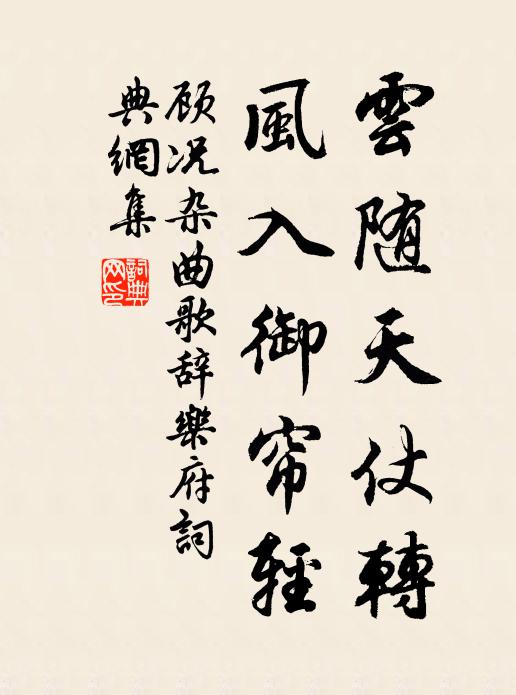 雲随天仗轉
風入御帘輕
顾况杂曲歌辞樂府詞
典網集
詞典网印